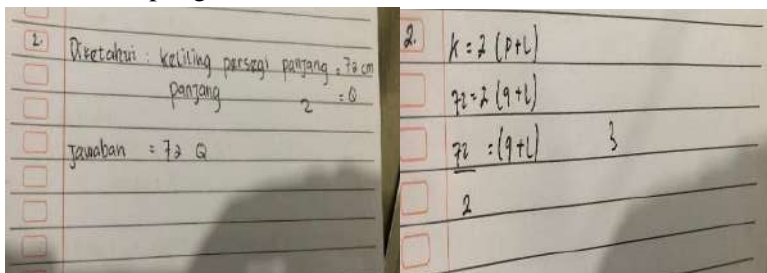 2.
Diketahui : keliling persegi panjang = 72 cm
panjang = Q
2
Jawaban = 72 Q
2.
K = 2 (P+L)
72 = 2 (q+L)
72 = (q+L) 3
2